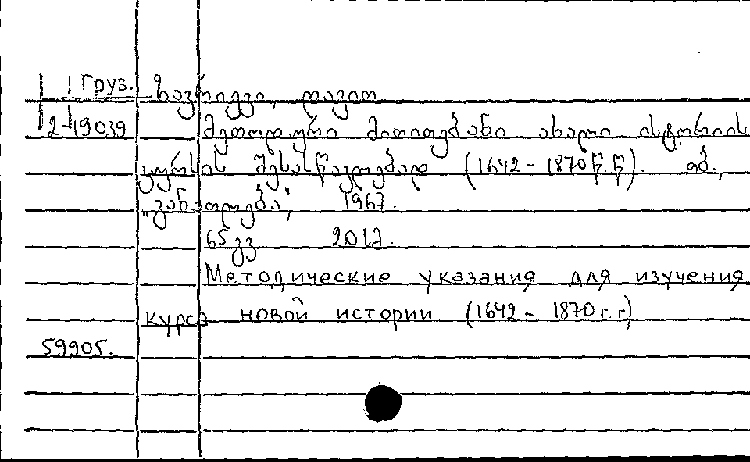 Груз. ზავრიევი, დავით
2-19039 მეთოდური მითითებანი ახალი ისტორიის
კურსის შესასწავლებად (1642-1870წ.წ). თბ.,
„განათლება“, 1967.
65გვ 2017.
Методические указания для изучения
курса новой истории (1642-1870г.г)
59905.